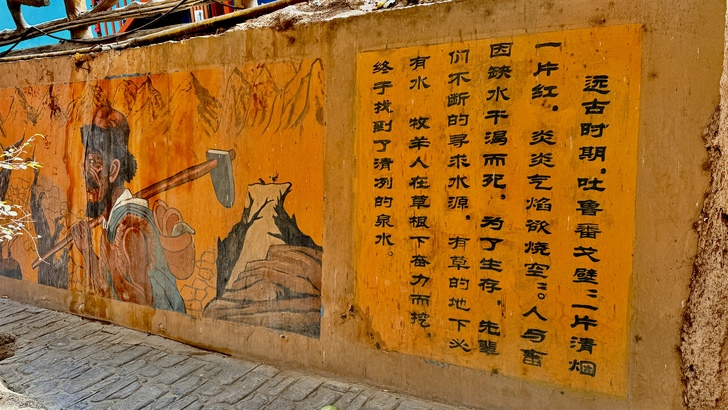 远古时期，吐鲁番戈壁：“一片清烟
一片红，炎炎气焰欲烧空”。人与畜
因缺水干渴而死，为了生存，先辈
们不断的寻求水源。有草的地下必
有水 牧羊人在草根下奋力而挖，
终于找到了清冽的泉水。